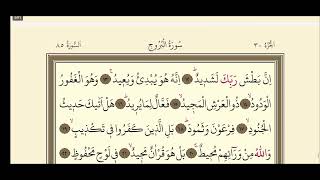 الجزء ٣٠ سورة البروج السورة ٨٥
إِنَّ بَطْشَ رَبِّكَ لَشَدِيدٌ ﴿١٢﴾ إِنَّهُ هُوَ يُبْدِئُ وَيُعِيدُ ﴿١٣﴾ وَهُوَ الْغَفُورُ
الْوَدُودُ ﴿١٤﴾ ذُو الْعَرْشِ الْمَجِيدُ ﴿١٥﴾ فَعَّالٌ لِمَا يُرِيدُ ﴿١٦﴾ هَلْ أَتَيكَ حَدِيثُ
الْجُنُودِ ﴿١٧﴾ فِرْعَوْنَ وَثَمُودَ ﴿١٨﴾ بَلِ الَّذِينَ كَفَرُوا فِي تَكْذِيبٍ ﴿١٩﴾
وَاللَّهُ مِنْ وَرَائِهِمْ مُحِيطٌ ﴿٢٠﴾ بَلْ هُوَ قُرْآنٌ مَجِيدٌ ﴿٢١﴾ فِي لَوْحٍ مَحْفُوظٍ ﴿٢٢﴾